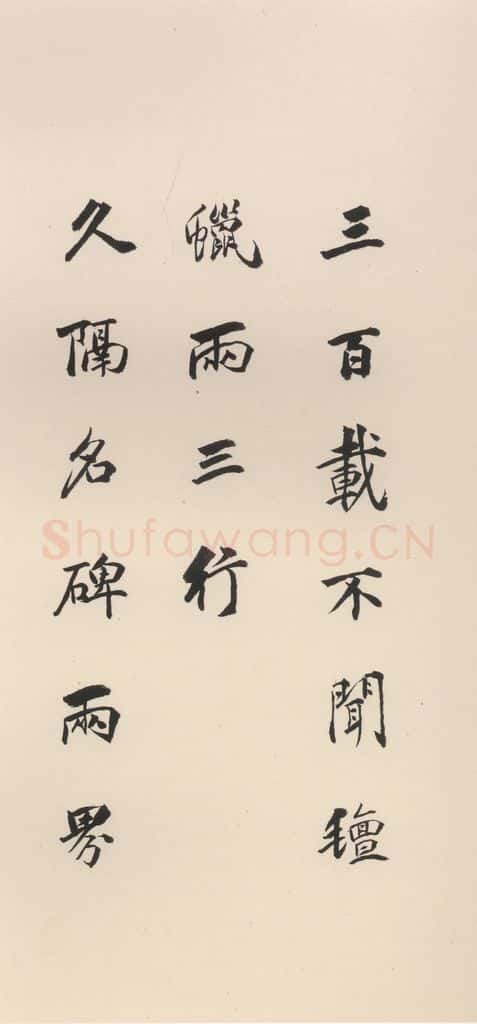 三百載不聞氊
蠟兩三行
久隔名碑兩界
Shufawang.CN